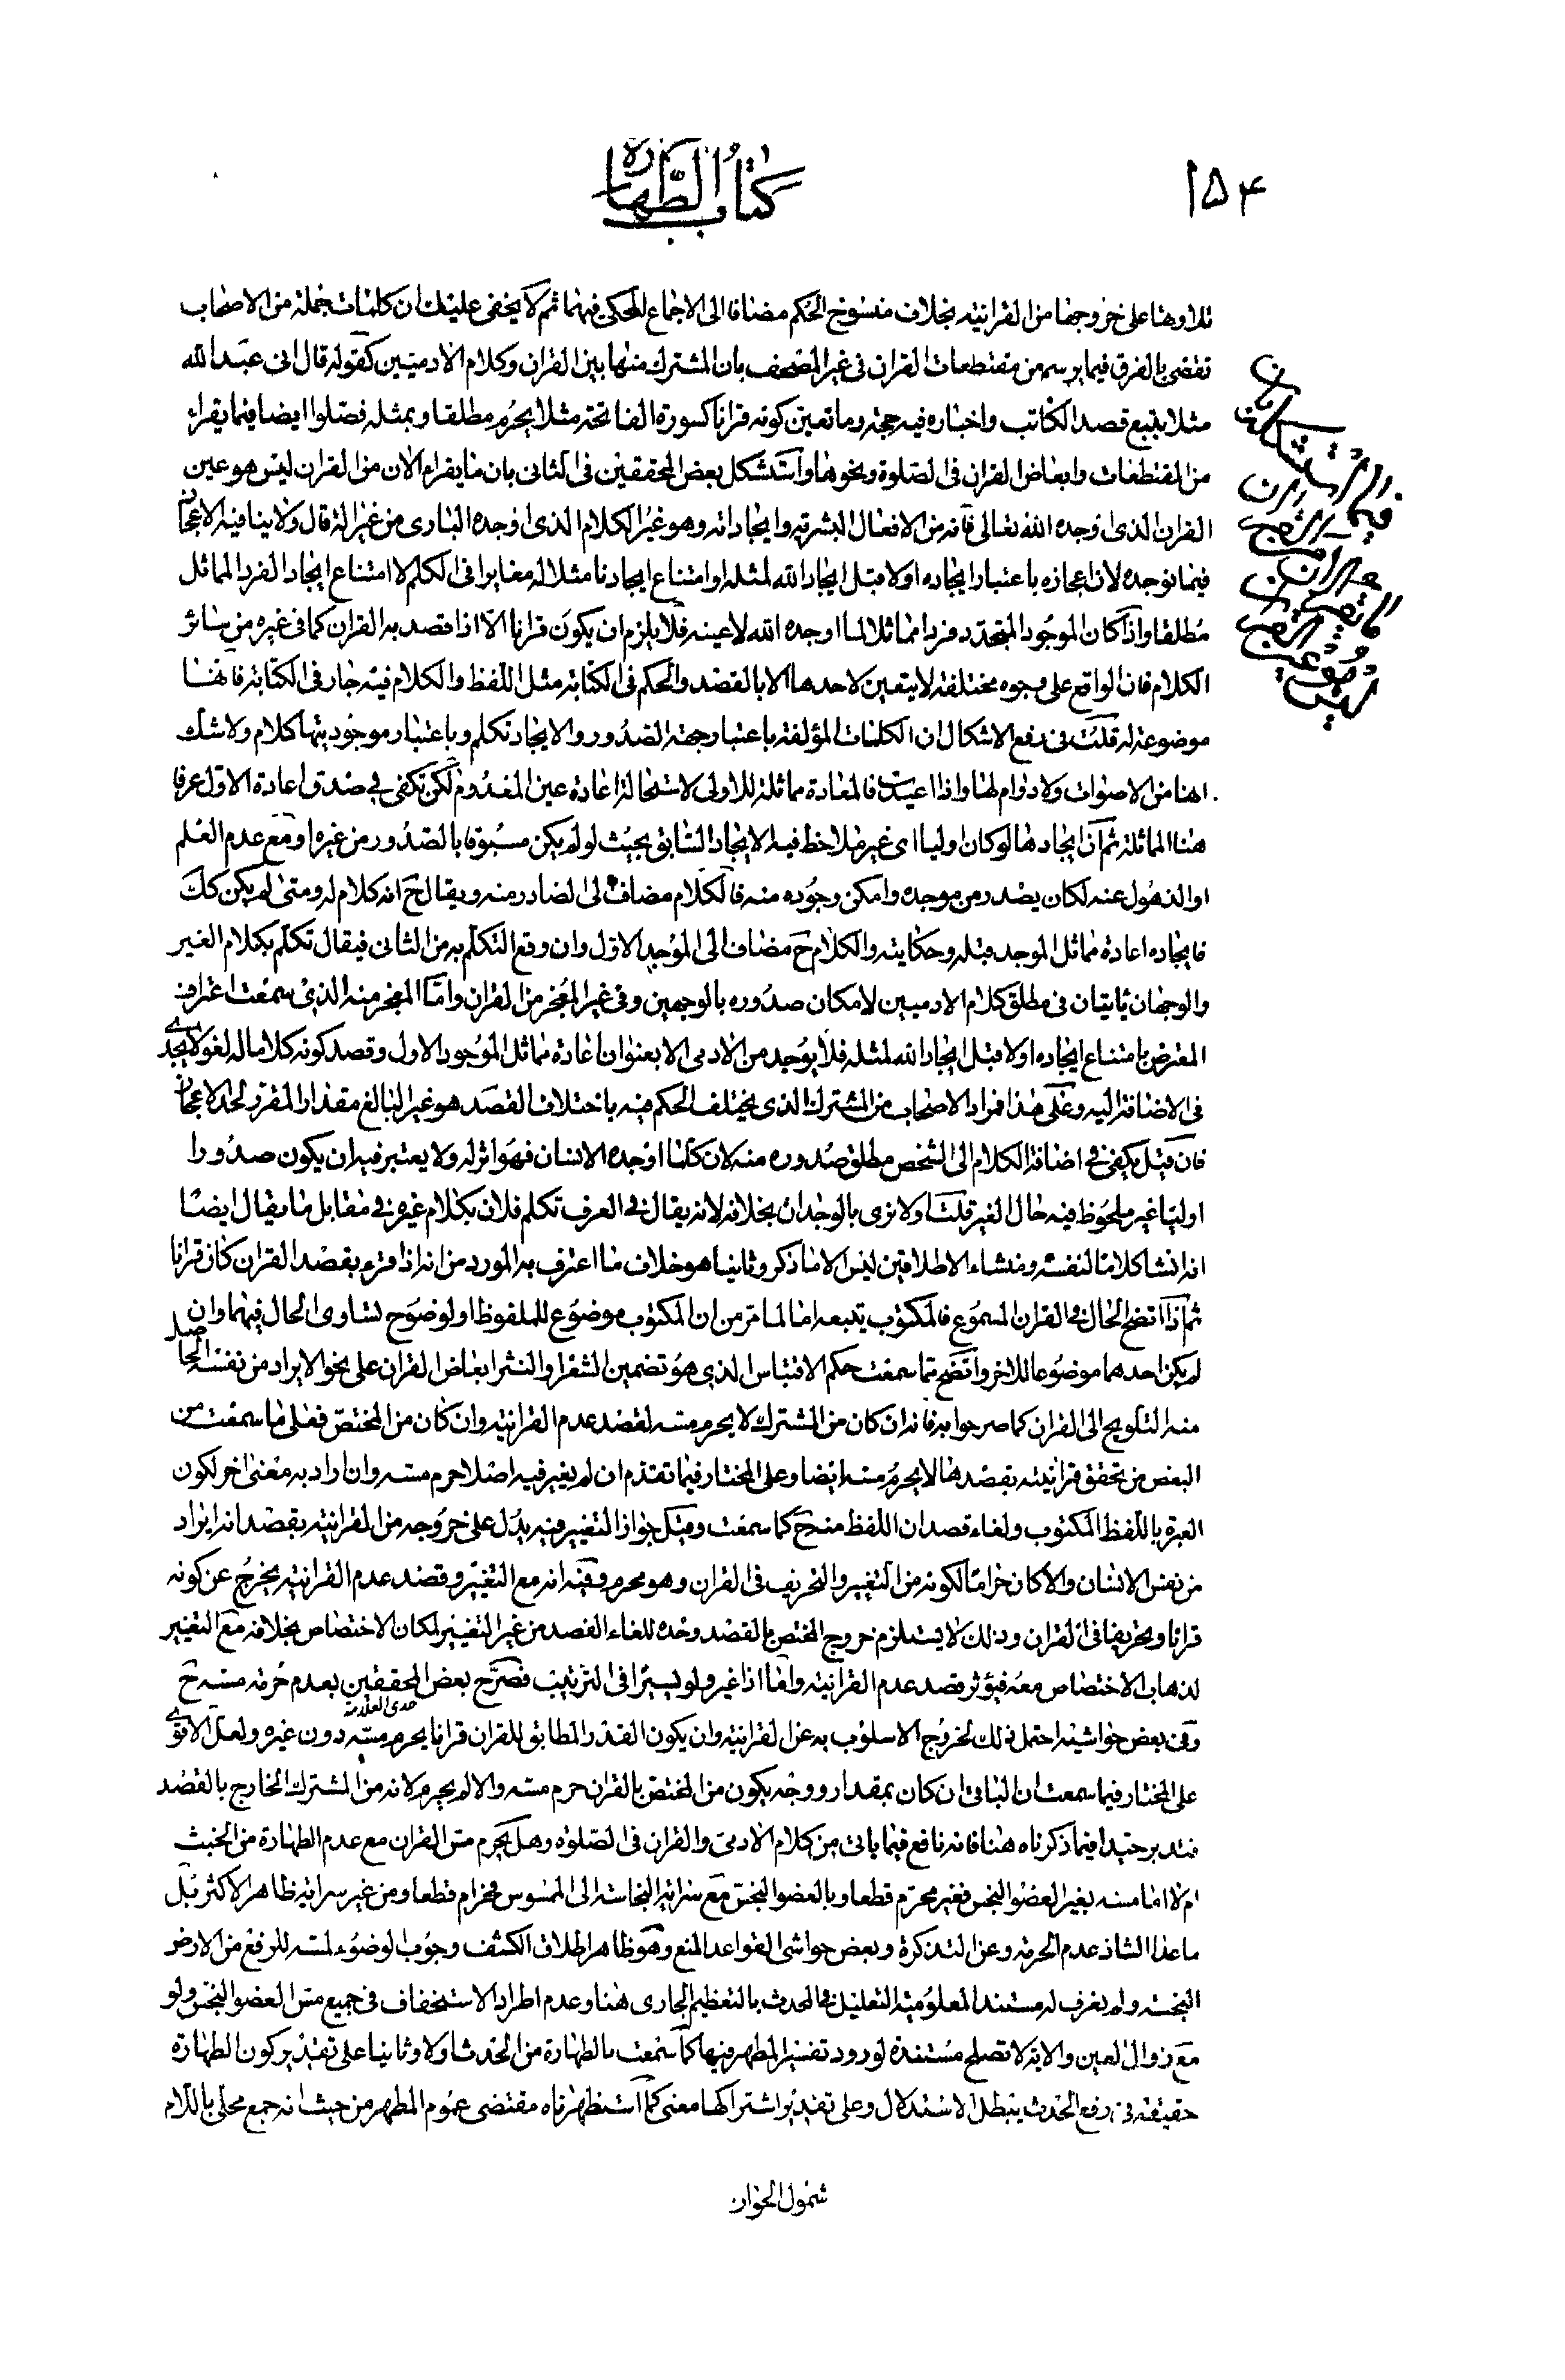 ١٥٤
كتاب الطهارة
تلاوتها على خروجها من القرانية بخلاف منسوخ الحكم مضافا الى الاجماع المحكى فيهما ثم لا يخفى عليك ان كلمات جملة من الاصحاب
تقضى بالفرق فيما يرسم من مقتطعات القران فى غير المصحف بان المشترك منها بين القران وكلام الادميين كقوله قال انى عبد الله
مثلا يتبع قصد الكاتب واخباره فيه حجة وما تعين كونه قرانا كسورة الفاتحة مثلا يحرم مطلقا وبمثله فصلوا ايضا فيما يقراء
من المقتطعات وابعاض القران فى الصلوة ونحوها واستشكل بعض المحققين فى الثانى بان ما يقرأ الان من القران ليس هو عين
القران الذى اوجده الله تعالى فانه من الافعال البشرية وايجاداته وهو غير الكلام الذى اوجده البارى من غير الة قال ولا ينافيه الاعجاز
فيما نوجده لان اعجازه باعتبار ايجاده اولا قبل ايجاد الله لمثله او امتناع ايجادنا مثلا له مغايرا فى الكلم لا امتناع ايجاد الفرد المماثل
مطلقا واذا كان الموجود المتجدد فردا مماثلا لما اوجده الله لا عينه فلا يلزم ان يكون قرانا الا اذا قصد به القران كما فى غيره من سائر
الكلام فان الواقع على وجوه مختلفة لا يتعين لاحدها الا بالقصد والحكم فى الكتابة مثل اللفظ والكلام فيه جار فى الكتابة فانها
موضوعة له قلت فى دفع الاشكال ان الكلمات المؤلفة باعتبار جهة الصدور والايجاد تكلم وباعتبار موجوديتها كلام ولا شك
انها من الاصوات ولا دوام لها واذا اعيدت فالمعادة مماثلة للاولى لاستحالة اعادة عين المعدوم لكن تكفى فى صدق اعادة الاول عرفا
هنا المماثلة ثم ان ايجادها لو كان اوليا اى غير ملاحظ فيه الايجاد السابق بحيث لو لم يكن مسبوقا بالصدور من غيره او مع عدم العلم
او الذهول عنه لكان يصدر من موجده وامكن وجوده منه فالكلام مضاف الى الصادر منه ويقال ح انه كلام له ومتى لم يكن كك
فايجاده اعادة مماثل الموجد قبله وحكايته والكلام ح مضاف الى الموجد الاول وان وقع التكلم به من الثانى فيقال تكلم بكلام الغير
والوجهان ثابتان فى مطلق كلام الادميين لامكان صدوره بالوجهين وفى غير المعجز من القران واما المعجز منه الذى سمعت اعتراف
المعترض بامتناع ايجاده اولا قبل ايجاد الله لمثله فلا يوجد من الادمى الا بعنوان اعادة مماثل الموجود الاول وقصد كونه كلاما له لغو لا يجدى
فى الاضافة اليه وعلى هذا فمراد الاصحاب من المشترك الذى يختلف الحكم فيه باختلاف القصد هو غير البالغ مقدار المقرر لحد الاعجاز
فان قيل يكفى فى اضافة الكلام الى الشخص مطلق صدوره منه لان كلما اوجده الانسان فهو اثر له ولا يعتبر فيه ان يكون صدورا
اوليا غير ملحوظ فيه حال الغير قلت اولا نرى بالوجدان بخلافه لانه يقال فى العرف تكلم فلان بكلام غيره فى مقابل ما يقال ايضا
انه انشا كلاما لنفسه ومنشاء الاطلاقين ليس الا ما ذكر وثانيا هو خلاف ما اعترف به المورد من انه اذا قرء بقصد القران كان قرانا
ثم اذا اتضح الحال فى القران المسموع فالمكتوب يتبعه اما لما مر من ان المكتوب موضوع للملفوظ او لوضوح تساوى الحال فيهما وان
لم يكن احدهما موضوعا للاخر واتضح مما سمعت حكم الاقتباس الذى هو تضمين الشعر او النثر ابعاض القران على نحو الايراد من نفسه الحاصل
منه التلويح الى القران كما صرحوا به فانه ان كان من المشترك لا يحرم مسه لقصد عدم القرانية وان كان من المختص فعلى ما سمعت من
البعض من تحقق قرانيته بقصدها لا يحرم مسه ايضا وعلى المختار فيما تقدم ان لم يغير فيه اصلا حرم مسه وان اراد به معنى اخر لكون
العبرة باللفظ المكتوب ولغاء قصد ان اللفظ منه ح كما سمعت وقيل جواز التغيير فيه يدل على خروجه من القرانية بقصد انه ايراد
من نفس الانسان والا كان حراما لكونه من التغيير والتحريف فى القران وهو محرم وفيه انه مع التغيير وقصد عدم القرانية يخرج عن كونه
قرانا وتحريفا فى القران وذلك لا يستلزم خروج المختص بالقصد وحده للغاء القصد من غير التغيير لمكان الاختصاص بخلافه مع التغيير
لذهاب الاختصاص معه فيؤثر قصد عدم القرانية واما اذا غير ولو يسيرا فى الترتيب فصرح بعض المحققين بعدم حرمة مسه ح
وفى بعض حواشيه احتمل ذلك لخروج الاسلوب به عن القرانية وان يكون القدر المطابق للقران قرانا يحرم مسه دون غيره ولعل الاقوى
على المختار فيما سمعت ان الباقى ان كان بمقدار ووجه يكون من المختص بالقران حرم مسه والا لم يحرم لانه من المشترك الخارج بالقصد
فتدبر جيدا فيما ذكرناه هنا فانه نافع فيما ياتى من كلام الادمى والقران فى الصلوة وهل يحرم مس القران مع عدم الطهارة من الخبث
ام لا اما مسه بغير العضو النجس فغير محرم قطعا وبالعضو النجس مع سراية النجاسة الى الممسوس فحرام قطعا ومن غير سراية ظاهر الاكثر بل
ما عدا الشاذ عدم الحرمة وعن التذكرة وبعض حواشى القواعد المنع وهو ظاهر اطلاق الكشف وجوب الوضوء لمسه للرفع من الارض
النجسة ولم يعرف له مستند المعلومية التعليل فى المحدث بالتعظيم الجارى هنا وعدم اطراد الاستخفاف فى جميع مس العضو النجس ولو
مع زوال العين والاية لا تصلح مستندة لورود تفسير المطهر فيها كما سمعت بالطهارة من الحدث اولا وثانيا على تقدير كون الطهارة
حقيقة فى رفع الحدث يبطل الاستدلال وعلى تقدير اشتراكها معنى كما استظهرناه مقتضى عموم المطهر من حيث انه جمع محلى باللام